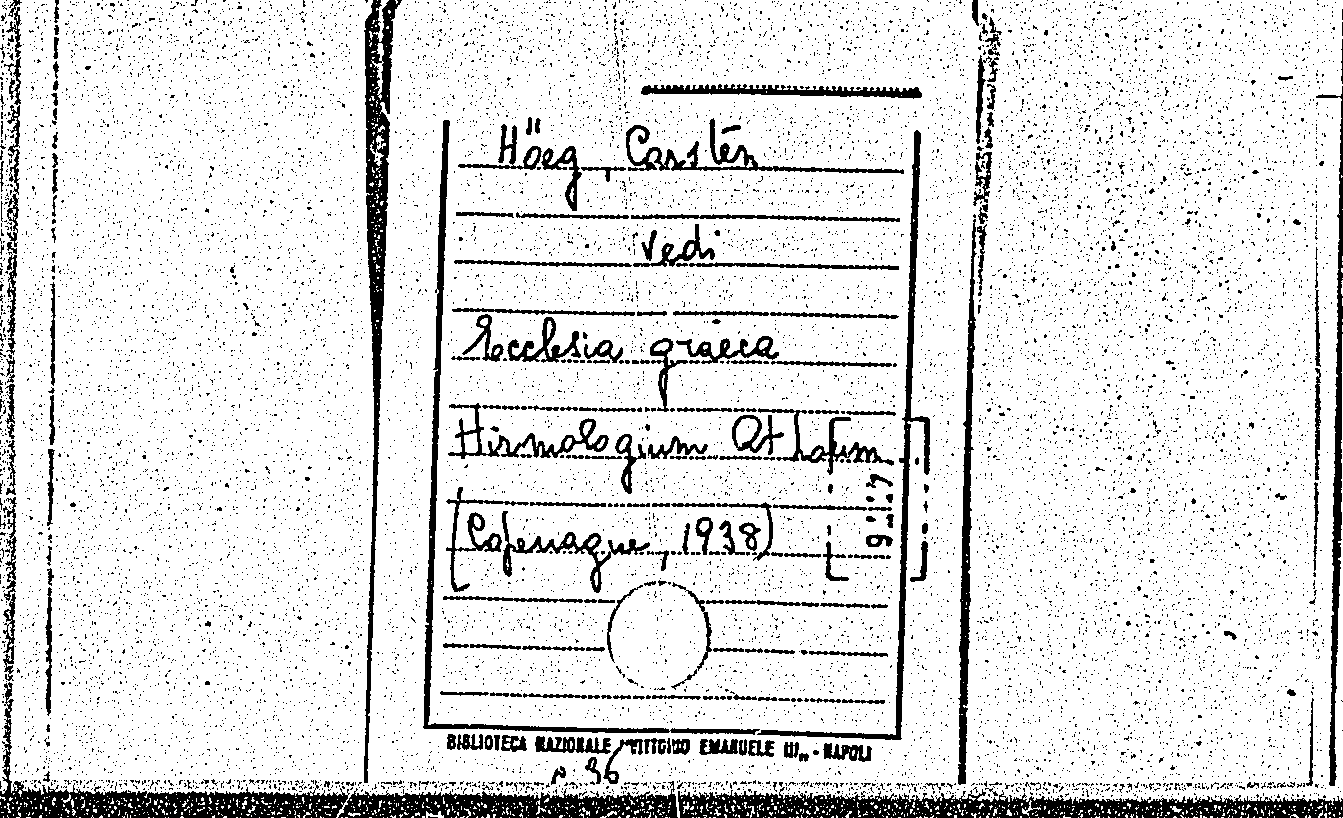 Höeg, Carsten
vedi
Ecclesia graeca
Hirmologium Athoum
(Copenague, 1938)
BIBLIOTECA NAZIONALE "VITTORIO EMANUELE III„ - NAPOLI
36